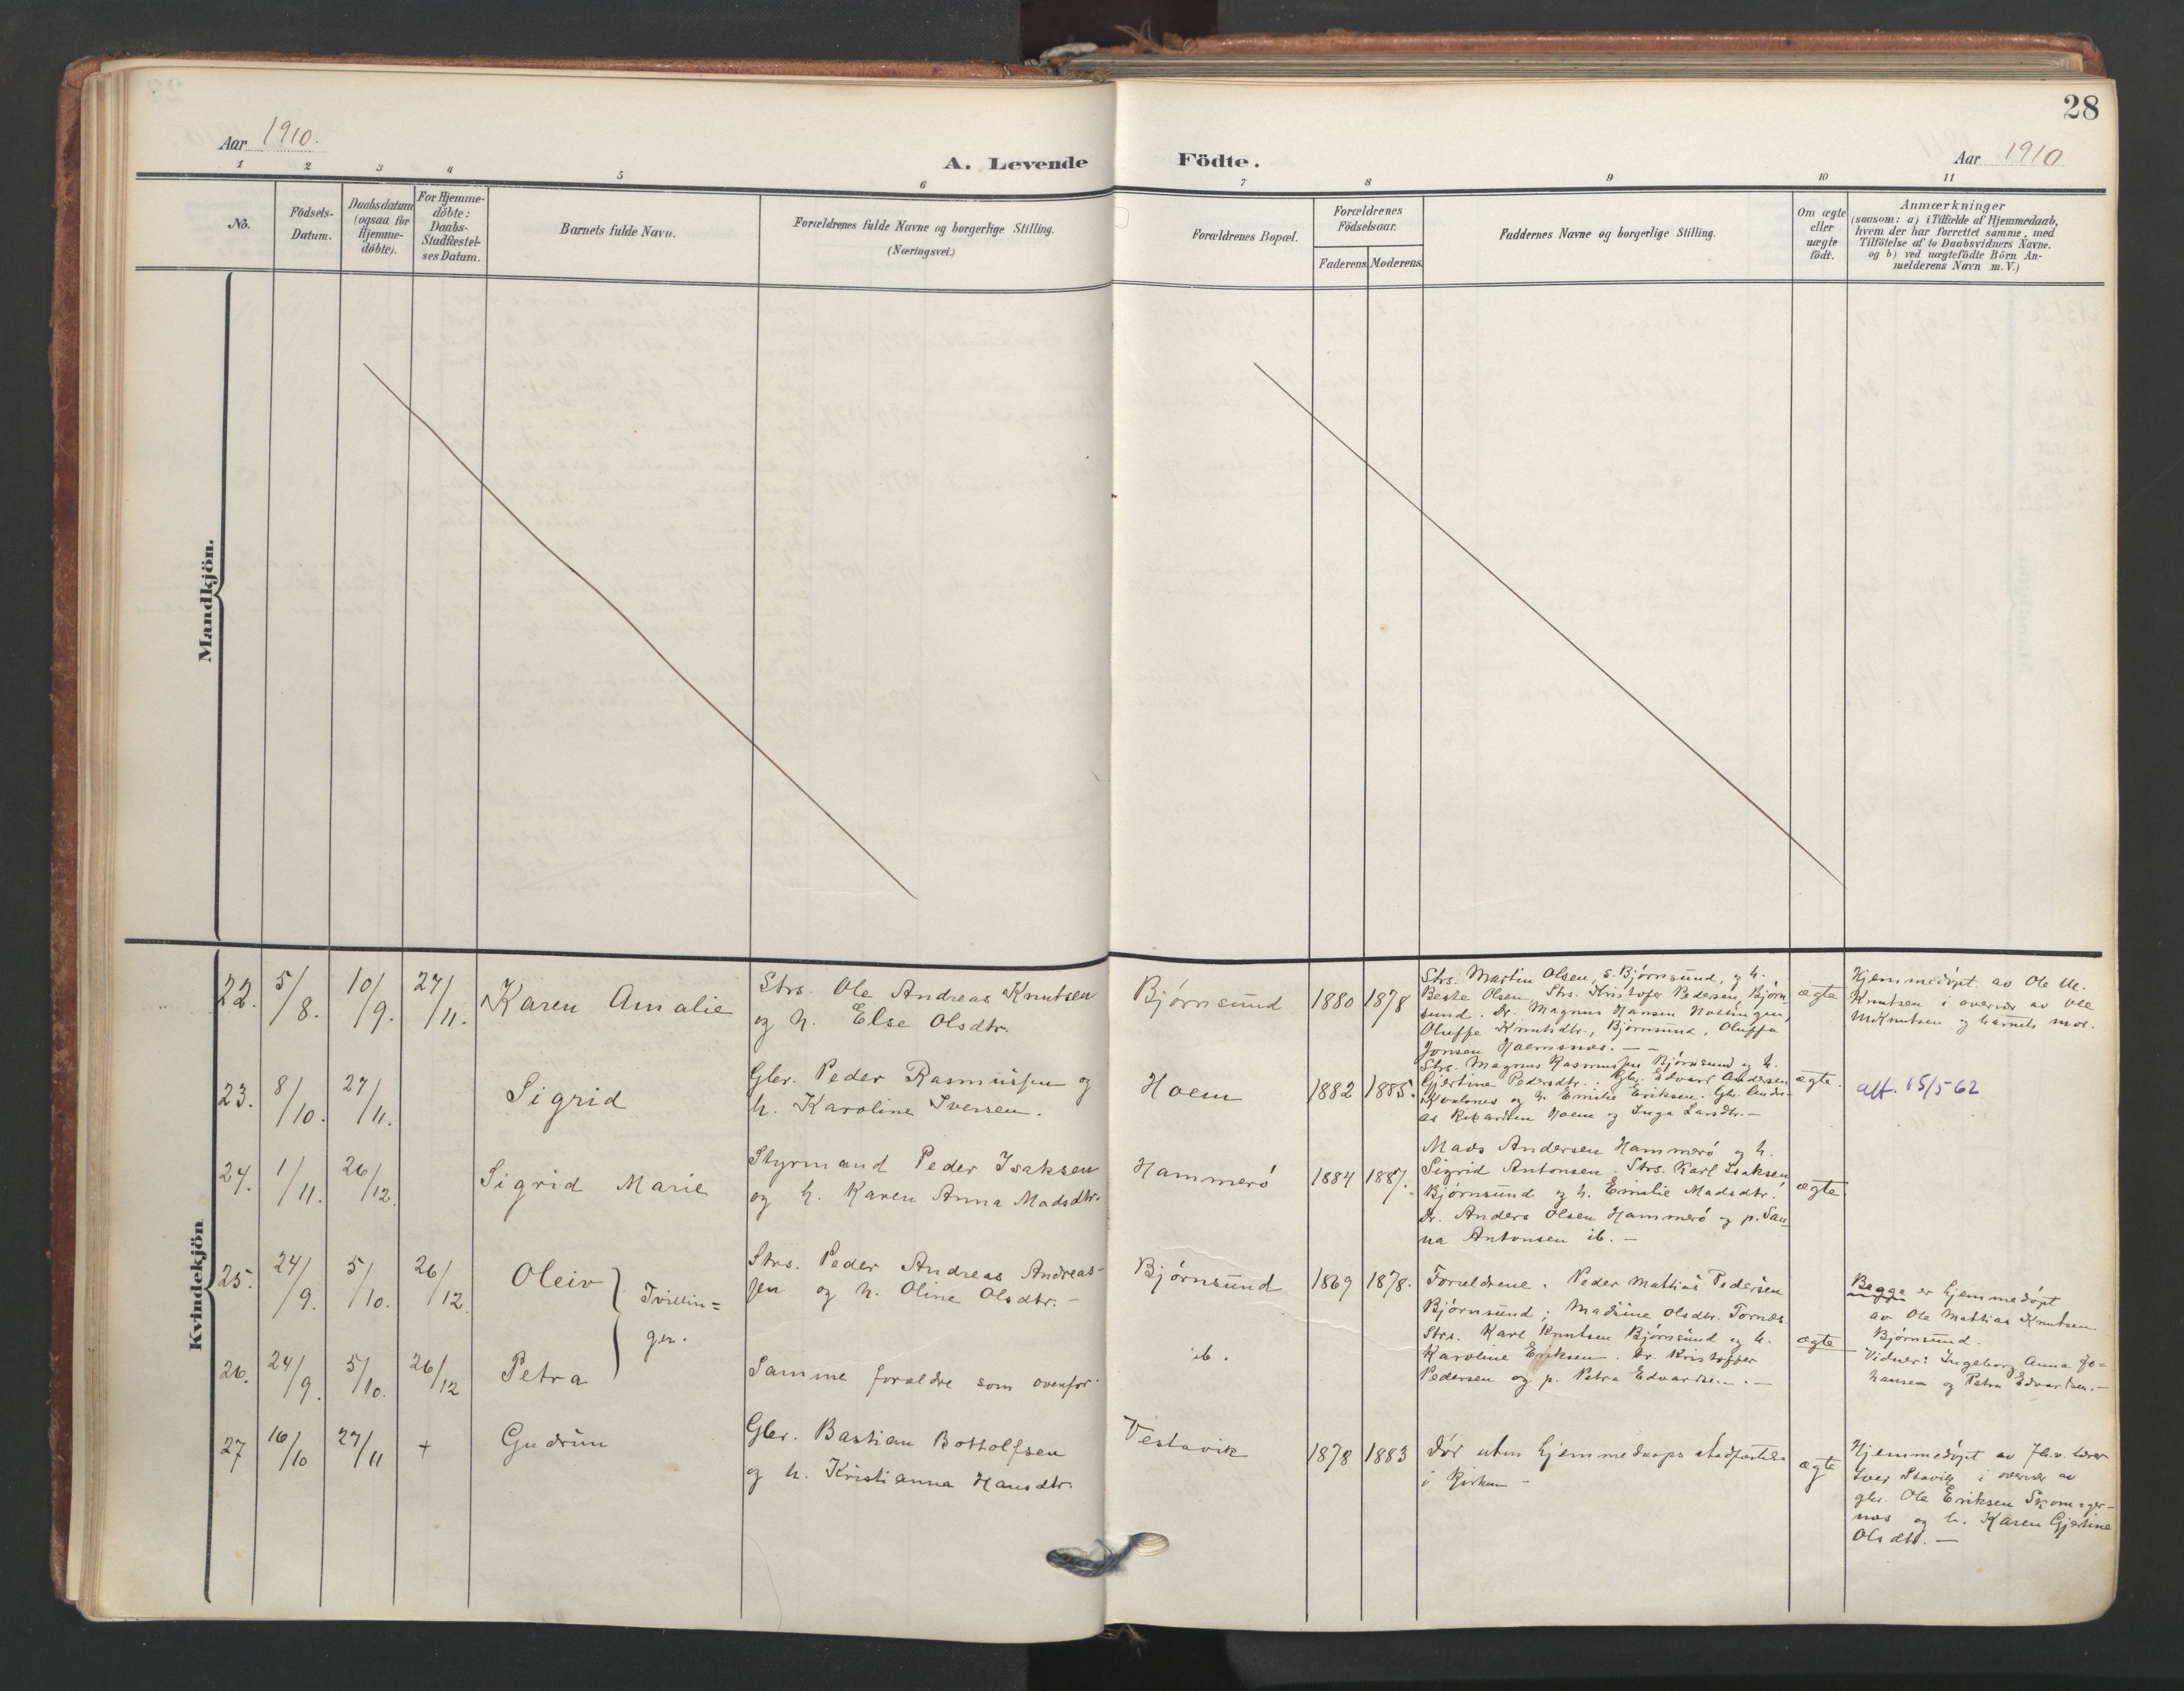 28
Aar 1910.
A. Levende Födte.
Aar 1910
1 2 3 4 5 6 7 8 9 10 11
No.
Födsels-
Datum.
Daabsdatum
(ogsaa for
Hjemme-
döbte).
For Hjemme-
döbte:
Daabs-
Stadfæstel-
ses Datum.
Barnets fulde Navn.
Forældrenes fulde Navne og borgerlige Stilling.
(Næringsvei.)
Forældrenes Bopæl.
Forældrenes
Födselsaar.
Faderens. Moderens.
Faddernes Navne og borgerlige Stilling.
Om ægte
eller
uægte
födt.
Anmærkninger
(saasom: a) i Tilfælde af Hjemmedaab,
hvem der har forrettet samme, med
Tilföielse af to Daabsvidners Navne.
og b) ved uægtefödte Börn An-
melderens Navn m. V.)
Mandkjön.
Kvindekjön
22. 5/8. 10/9. 27/11. Karen Amalie
Strs. Ole Andreas Knutsen
og h. Else Olsdtr.
Bjørnsund 1880 1878
Strs. Martin Olsen, s. Bjørnsund, og h.
Beate Olsen, Strs. Kristofer Pedersen, Bjørn
sund. Dr. Magnus Hansen
Oluffe Knutsdtr., Bjørnsund, Oluffa
Jonsen Hoemsnes. - -
ægte
Hjemmedøpt av Ole M.
Knutsen i overvær av Ole
MKnutsen og barnets mor.
23. 8/10. 27/11. Sigrid
Gbr. Peder Rasmussen og
h. Karoline Iversen.
Hoem 1882 1885.
Strs. Magnus Rasmussen Bjørnsund og h.
Gjertine Pedersdtr. Gbr. Edvard Andersen
og h. Emilie Eriksen. Gbr. Andre-
as Rikardsen Hoem og Inga Larsdtr. -
ægte.
att. 15/5 62
24. 1/11. 26/12. Sigrid Marie
Styrmand Peder Isaksen
og h. Karen Anna Madsdtr.
Hammerø 1884 1887.
Mads Andersen Hammerø og h.
Sigrid Antonsen. Strs. Karl Isaksen
Bjørnsund og h. Emilie Madsdtr.
Dr. Anders Olsen Hammerø og p. San-
na Antonsen ib. -
ægte
25. 24/9. 5/10. 26/12. Oleiv
Tvillin=
ger.
Strs. Peder Andreas Andreas-
sen og h. Oline Olsdtr. -
Bjørnsund 1869 1878.
Forældrene. Peder Mattias Pedersen
Bjørnsund; Madsine Olsdtr. Tornes
Strs. Karl Knutsen Bjørnsund og h.
Karoline Eriksen. Dr. Kristoffer
Pedersen og p. Petra Edvardsen. -
ægte
Begge er hjemmedøpt
av Ole Mattias Knutsen
Bjørnsund.
Vidner: Ingeborg Anna Jo=
hansen og Petra Edvartsen. -
26. 24/9. 5/10. 26/12 Petra
Samme forældre som ovenfor
ib.
27 16/10 27/11 + Gudrun
Gbr. Bastian Bottolfsen
og h. Kristianna Hansdtr.
Vestavik 1878 1883
Død uten hjemmedaaps stadfæstelse
i Kirken -
ægte
Hjemmedøpt av lærer
Iver Stavik i overvær av
gbr. Ole Eriksen
nes og h. Karen Gjertine
Olsdtr. -